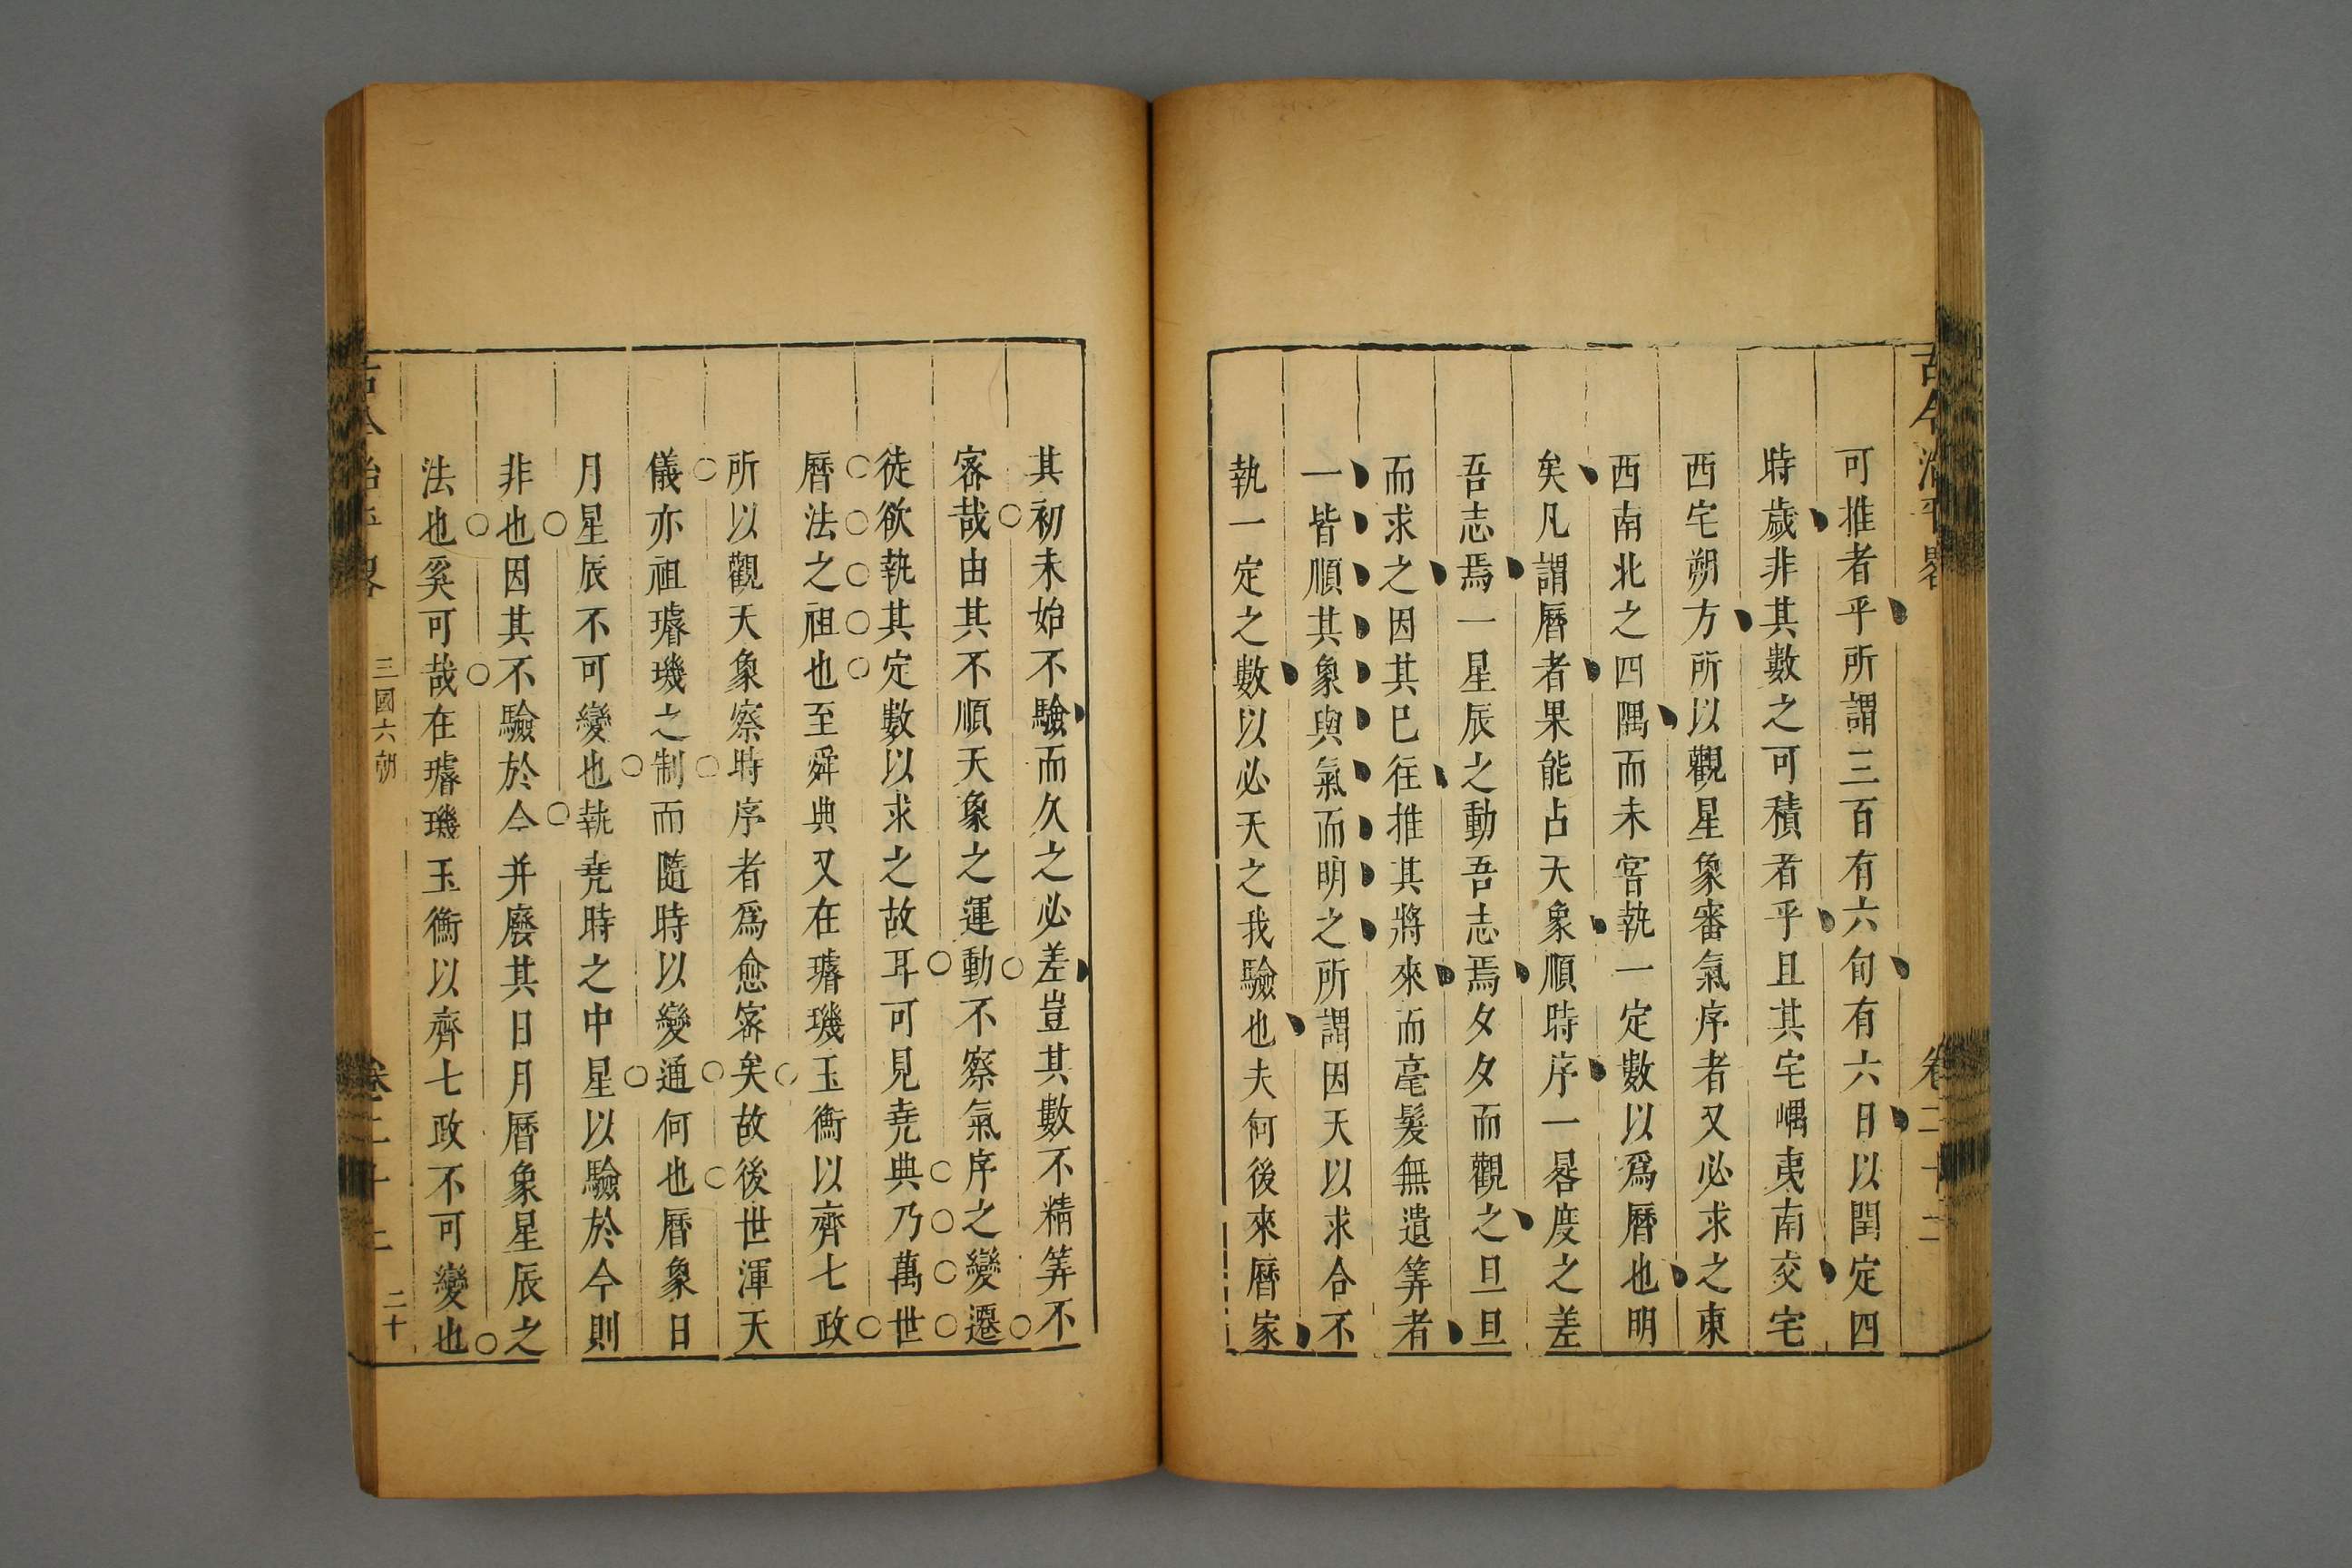 古今治平畧
卷二十二
可推者乎所謂三百有六旬有六日以閏定四
時歲非其數之可積者乎且其宅嵎夷南交宅
西宅朔方所以觀星象審氣序者又必求之東
西南北之四隅而未嘗執一定數以爲曆也明
矣凡謂曆者果能占天象順時序一晷度之差
吾志焉一星辰之動吾志焉夕夕而觀之旦旦
而求之因其已徃推其將來而毫髮無遺筭者
一皆順其象與氣而明之所謂因天以求合不
執一定之數以必天之我驗也夫何後來曆家
其初未始不驗而久之必差豈其數不精筭不
宻哉由其不順天象之運動不察氣序之變遷
徒欲執其定數以求之故耳可見尭典乃萬世
曆法之祖也至舜典又在璿璣玉衡以齊七政
所以觀天象察時序者爲愈宻矣故後世渾天
儀亦祖璿璣之制而隨時以變通何也曆象日
月星辰不可變也執尭時之中星以驗於今則
非也因其不驗於今并廢其日月曆象星辰之
法也奚可哉在璿璣玉衡以齊七政不可變也
古今治平畧
三國六朝
卷二十二
二十